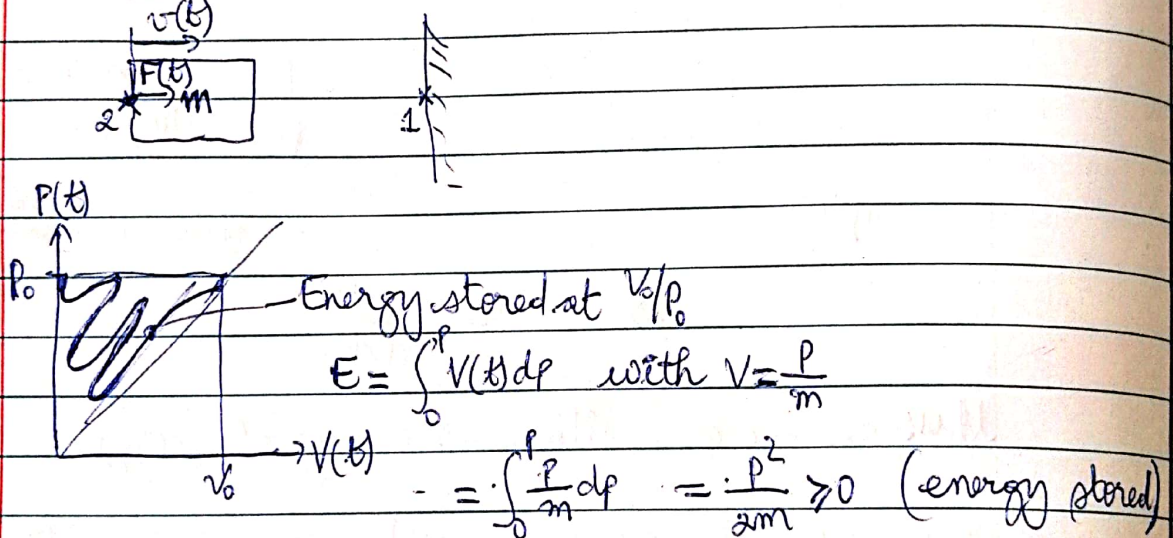 v(t)
F(t)
m
2
1
P(t)
P₀
Energy stored at V₀/P₀
E = ∫₀ᴾ V(t)dp with V = P/m
V(t)
V₀
= ∫₀ᴾ P/m dp = P²/2m ≥ 0 (energy stored)